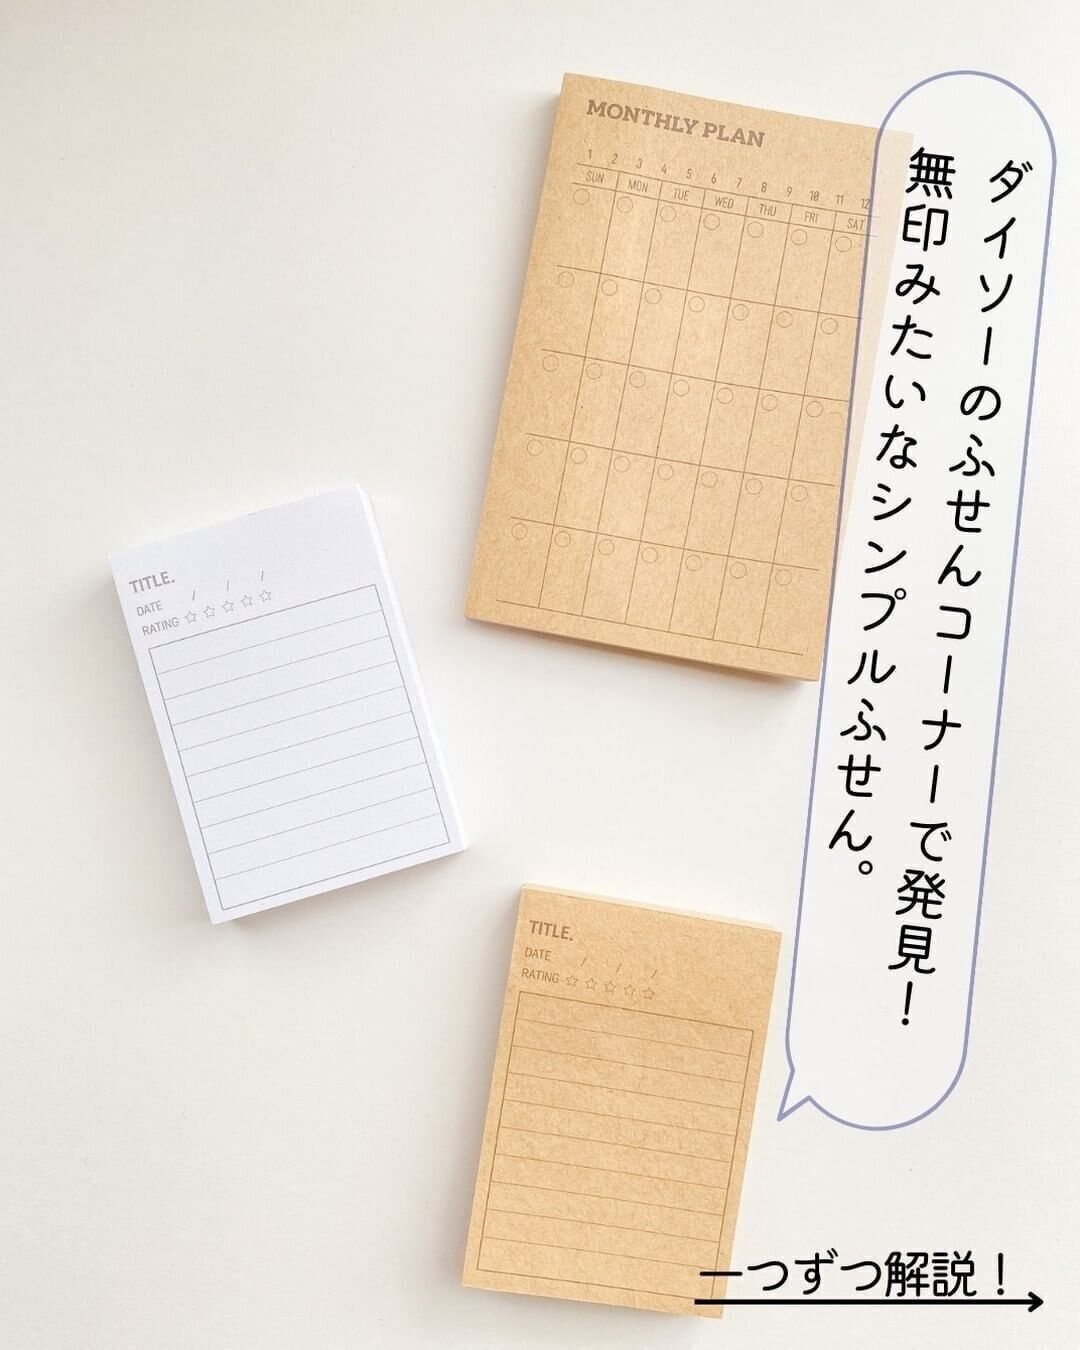 ダイソーのふせんコーナーで発見！
無印みたいなシンプルふせん。
MONTHLY PLAN
1 2 3 4 5 6 7 8 9 10 11 12
SUN MON TUE WED THU FRI SAT
TITLE.
DATE / /
RATING ☆☆☆☆☆
TITLE.
DATE / / /
RATING ☆☆☆☆☆
一つずつ解説！